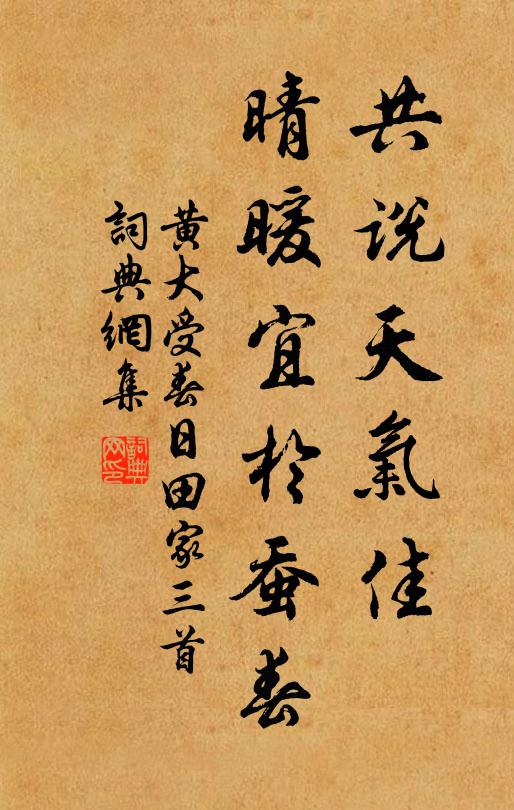 共说天氣佳
晴暖宜於蚕春
黄大受春日田家三首
詞典網集
詞典網印